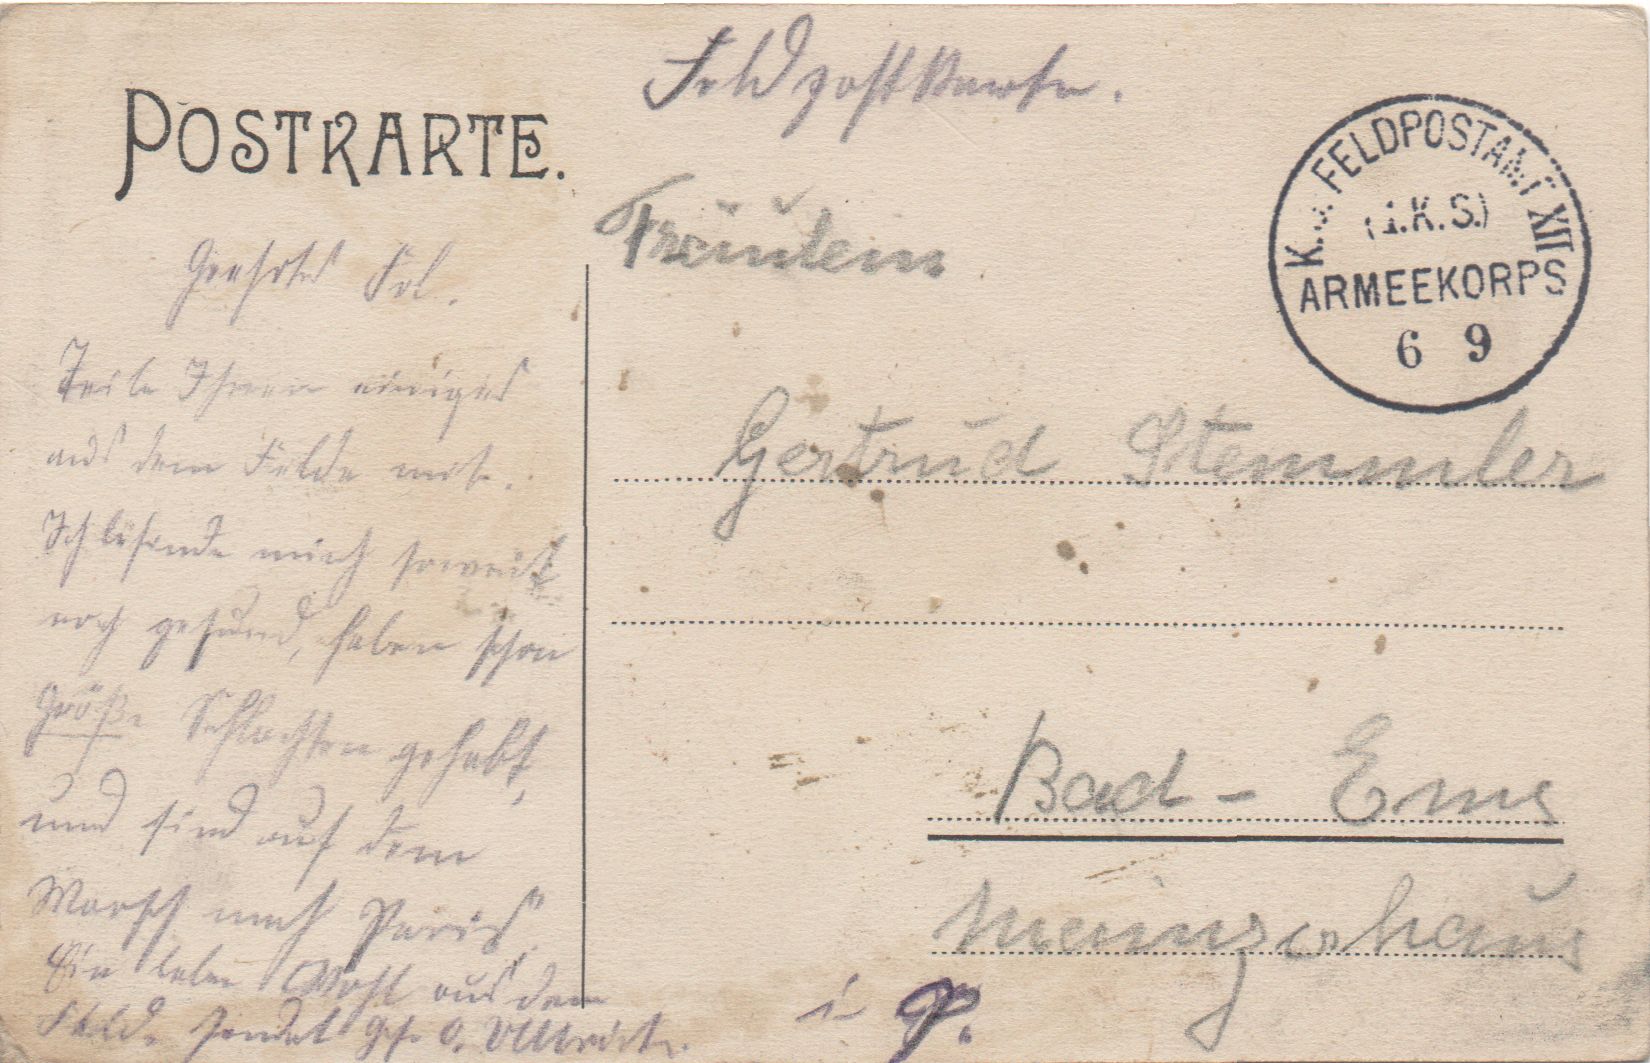 Feldpostkarte.
POSTKARTE.
K. FELDPOSTAMT XII
(1.K.S.)
ARMEEKORPS
6 9
Fräulein
Gertrud Stemmler
Bad - Ems
Mainzerhaus
Geehrtes Frl.
Teile Ihnen einiges
aus dem Felde mit.
Ich befinde mich soweit
noch gesund, haben schon
Große Schlachten gehabt,
und sind auf dem
Marsch nach Paris.
Ein lebe Wohl aus dem
Felde sendet O.